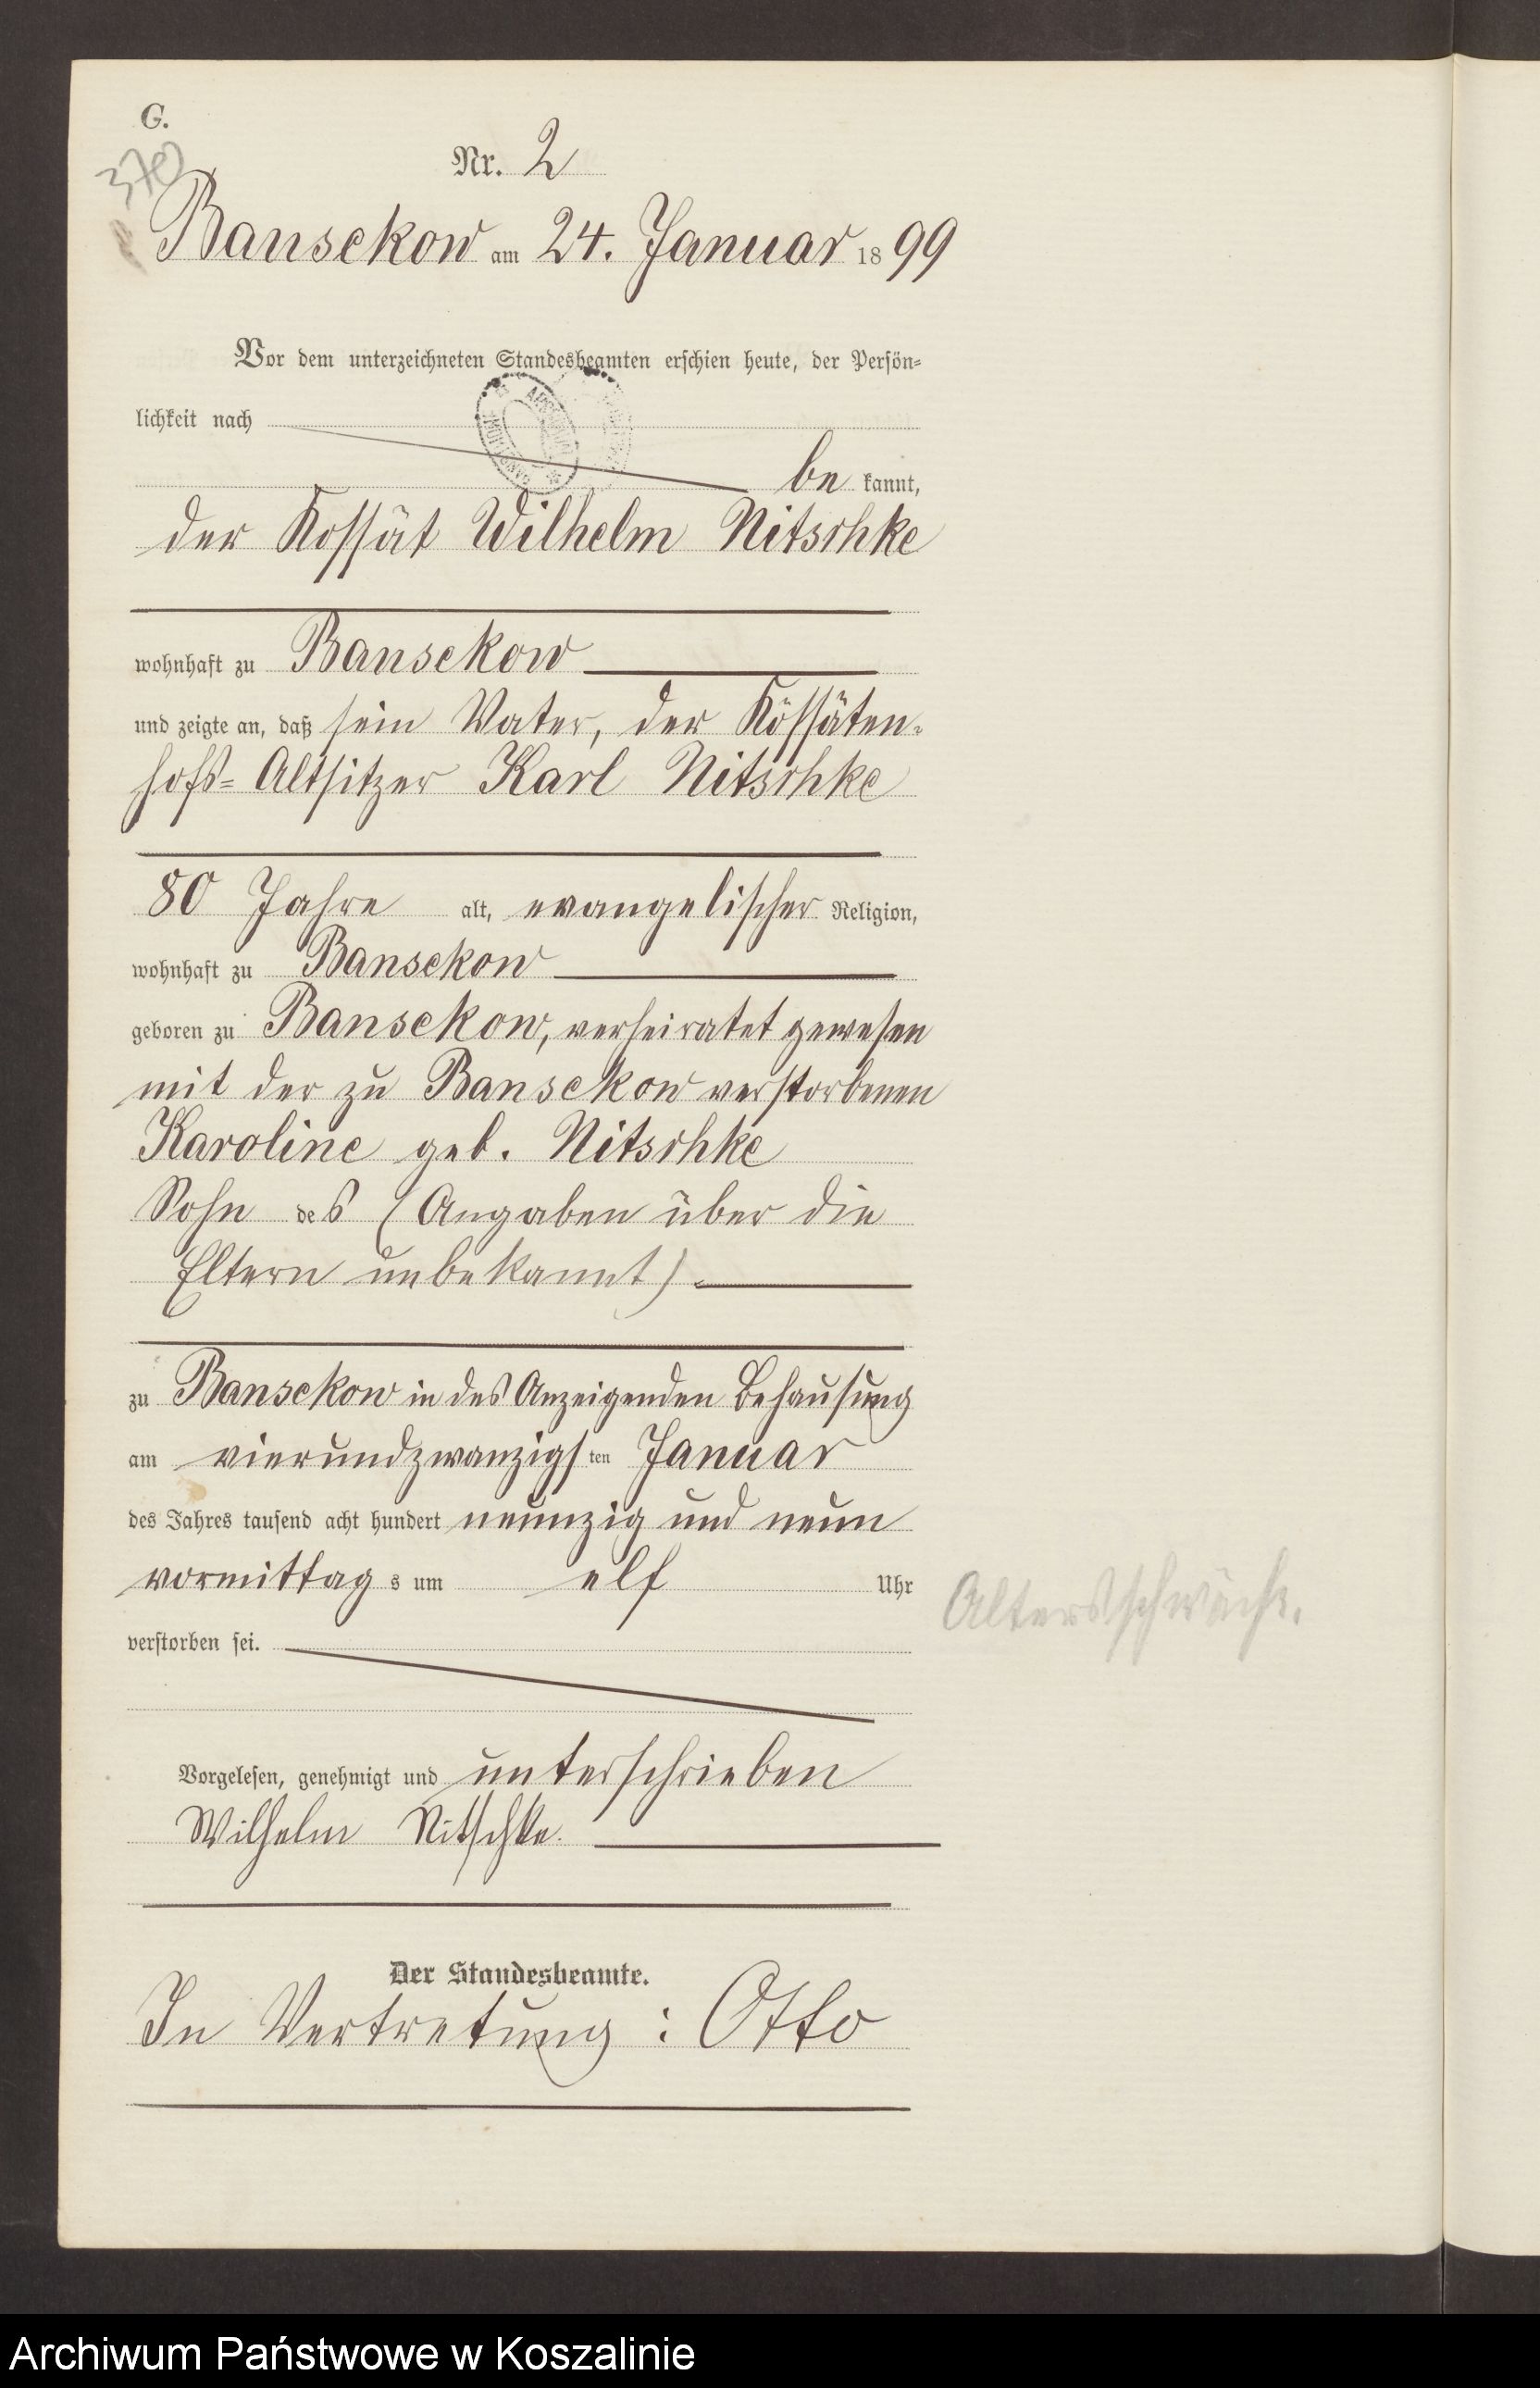 G.
370
Nr. 2
Bansekow am 24. Januar 1899
Vor dem unterzeichneten Standesbeamten erschien heute, der Persön-
lichkeit nach
be kannt,
der Kossät Wilhelm Nitschke
wohnhaft zu Bansekow
und zeigte an, daß sein Vater, der Kossäten-
hofs-Altsitzer Karl Nitschke
80 Jahre alt, evangelischer Religion,
wohnhaft zu Bansekow
geboren zu Bansekow, verheiratet gewesen
mit der zu Bansekow verstorbenen
Karoline geb. Nitschke
Sohn des (Angaben über die
Eltern unbekannt).
zu Bansekow in des Anzeigenden Behausung
am vierundzwanzigsten Januar
des Jahres tausend acht hundert neunzig und neun
vormittags um elf Uhr
Altersschwäche.
verstorben sei.
Vorgelesen, genehmigt und unterschrieben
Wilhelm Nitschke.
Der Standesbeamte.
In Vertretung: Otto
Archiwum Państwowe w Koszalinie